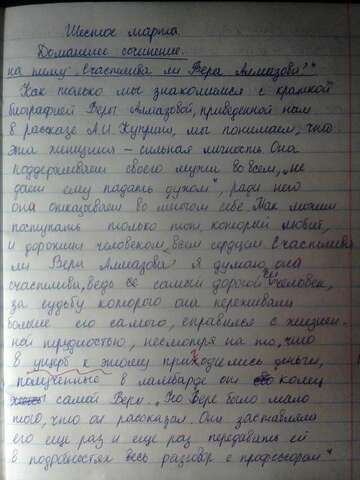 Шестое марта.
Домашнее сочинение.
на тему „Счастлива ли Вера Алмазова?"
Как только мы знакомимся с краткой
биографией Веры Алмазовой, приведённой нам
в рассказе А.И. Куприн, мы понимаем, что
эта женщина – сильная личность. Она
поддерживает своего мужа во всём, „не
даёт ему падать духом", ради него
она отказывает во многом себе. Так может
поступать только тот, который любит,
и дорожит человеком, всем сердцем. Счастлива
ли Вера Алмазова? Я думаю, она
счастлива, ведь её самый дорогой человек,
за судьбу которого она переживала
больше его самого, справился с жизнен-
ной трудностью, несмотря на то, что
в ущерб к этому приходились деньги,
полученные в ломбарде от колец
самой Веры. „Но Вере было мало
того, что он рассказал. Она заставляла
его ещё раз и ещё раз передавать ей
в подробностях весь разговор с профессором"